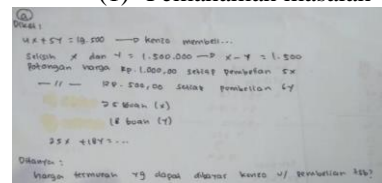 (1) Pemahaman masalah
a
Diket :
4x + 5y = 19.500 → kenzo membeli...
Selisih x dan y = 1.500.000 → x - y = 1.500
Potongan harga Rp. 1.000,00 setiap pembelian 5x
—"— 500,00 setiap pembelian 6y
25 buah (x)
18 buah (y)
25x + 18y = ...
Ditanya :
harga termurah yg dapat dibayar kenzo u/ pembelian tsb?